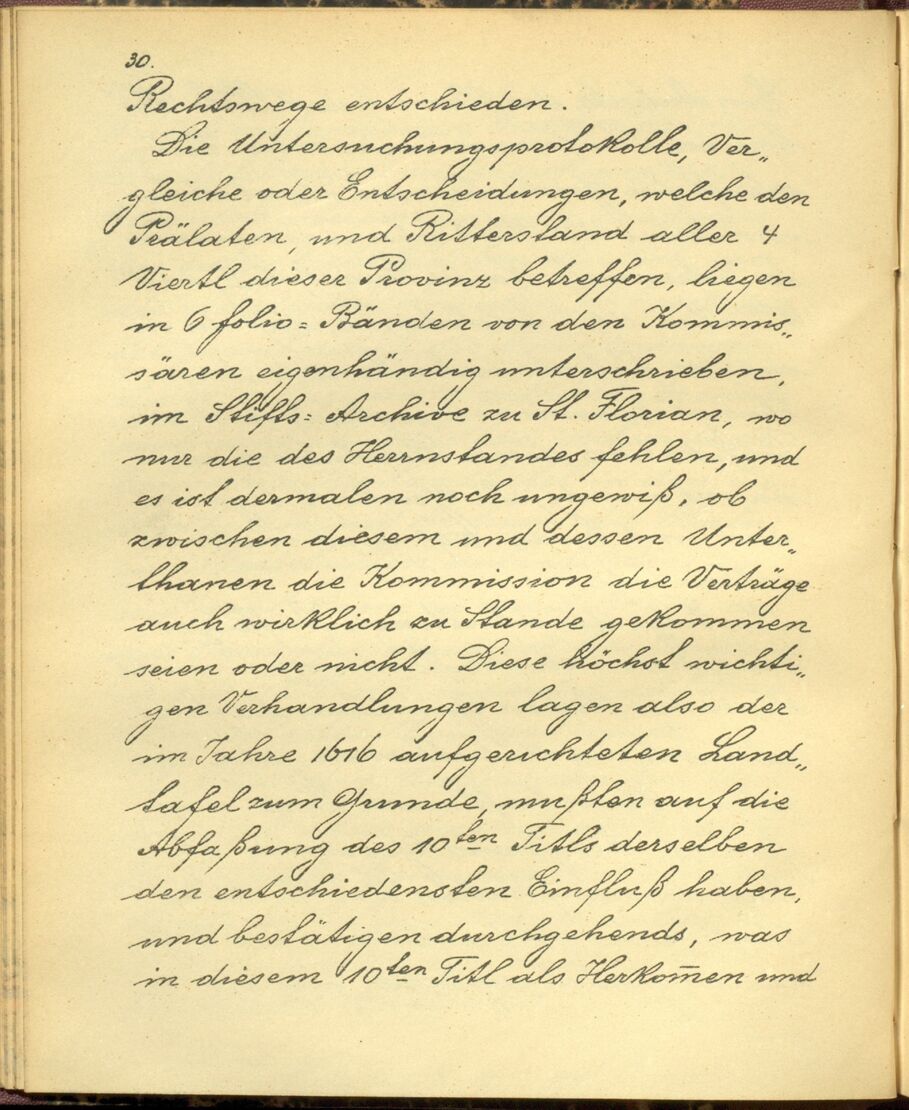 30.
Rechtswege entschieden.
Die Untersuchungsprotokolle, Ver„
gleiche oder Entscheidungen, welche den
Prälaten, und Ritterstand aller 4
Viertl dieser Provinz betreffen, liegen
in 6 folio= Bänden von den Kommis„
sären eigenhändig unterschrieben,
im Stifts= Archive zu St. Florian, wo
nur die des Herrnstandes fehlen, und
es ist dermalen noch ungewiß, ob
zwischen diesem und dessen Unter„
thanen die Kommission die Verträge
auch wirklich zu Stande gekommen
seien oder nicht. Diese höchst wichti„
gen Verhandlungen lagen also der
im Jahre 1616 aufgerichteten Land„
tafel zum Grunde, mußten auf die
Abfaßung des 10ten Titls derselben
den entschiedensten Einfluß haben,
und bestätigen durchgehends, was
in diesem 10ten Titl als Herkom̅en und